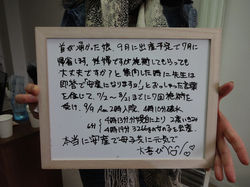 首が痛かった時、9月に出産予定で7月に
帰省し3日、妊婦ですが施術してもらっても
大丈夫ですか？と質問した時に先生は
即答で安産になりますよ！とおっしゃった言葉
を信じて、7/2〜8/31までに7回施術を
受け、9/9 Am2時入院、4時10分破水
4時13分分娩台より 2度いきみ
4時19分 3266gの男の子を出産。
本当に安産で母子共に元気で
大喜び